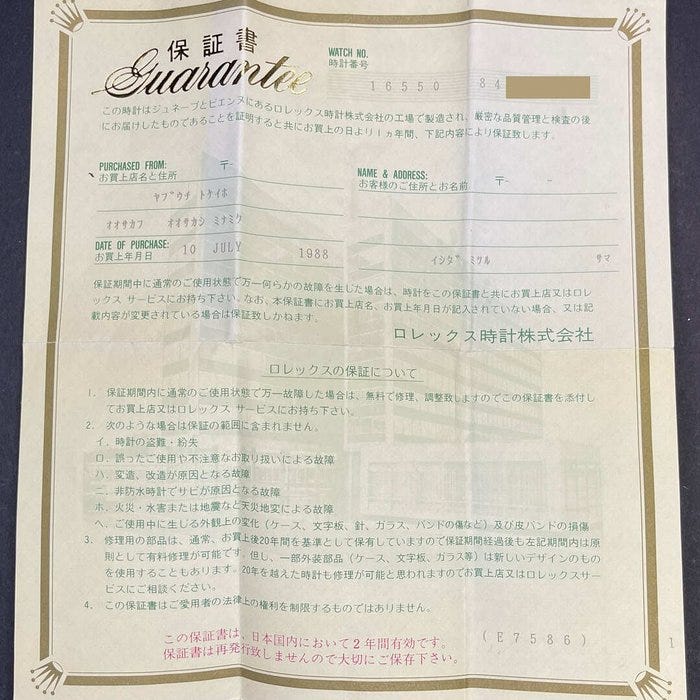 保証書
Guarantee
WATCH NO.
時計番号
16550 84
この時計はジュネーブとビエンヌにあるロレックス時計株式会社の工場で製造され、厳密な品質管理と検査の後
にお届けしたものであることを証明すると共にお買上の日より1ヵ年間、下記内容により保証致します。
PURCHASED FROM: 〒-
お買上店名と住所
ヤブウチ トケイホ
オオサカフ オオサカシ ミナミク
DATE OF PURCHASE: 10 JULY 1988
お買上年月日
NAME & ADDRESS: 〒- -
お客様のご住所とお名前
イシダ ミツル サマ
保証期間中に通常のご使用状態で万一何らかの故障を生した場合は、時計をこの保証書と共にお買上店又はロレ
ックス サービスにお持ち下さい。なお、本保証書にお買上店名、お買上年月日が記入されていない場合、又は記
載内容が変更されている場合は保証致しかねます。
ロレックス時計株式会社
ロレックスの保証について
1. 保証期間内に通常のご使用状態で万一故障した場合は、無料で修理、調整致しますのでこの保証書を添付し
てお買上店又はロレックス サービスにお持ち下さい。
2. 次のような場合は保証の範囲に含まれません。
イ. 時計の盗難・紛失
ロ. 誤ったご使用や不注意なお取り扱いによる故障
ハ. 変造、改造が原因となる故障
ニ. 非防水時計でサビが原因となる故障
ホ. 火災・水害または地震など天災地変による故障
ヘ. ご使用中に生じる外観上の変化(ケース、文字板、針、ガラス、バンドの傷など)及び皮バンドの損傷
3. 修理用の部品は、通常、お買上後20年間を基準として保有していますので保証期間経過後も左記期間内は原
則として有料修理が可能です。但し、一部外装部品(ケース、文字板、ガラス等)は新しいデザインのもの
を使用することもあります。20年を越えた時計も修理が可能と思われますのでお買上店又はロレックスサー
ビスにご相談ください。
4. この保証書はご愛用者の法律上の権利を制限するものではありません。
この保証書は、日本国内において2年間有効です。
保証書は再発行致しませんので大切にご保存下さい。
(E7586)
1